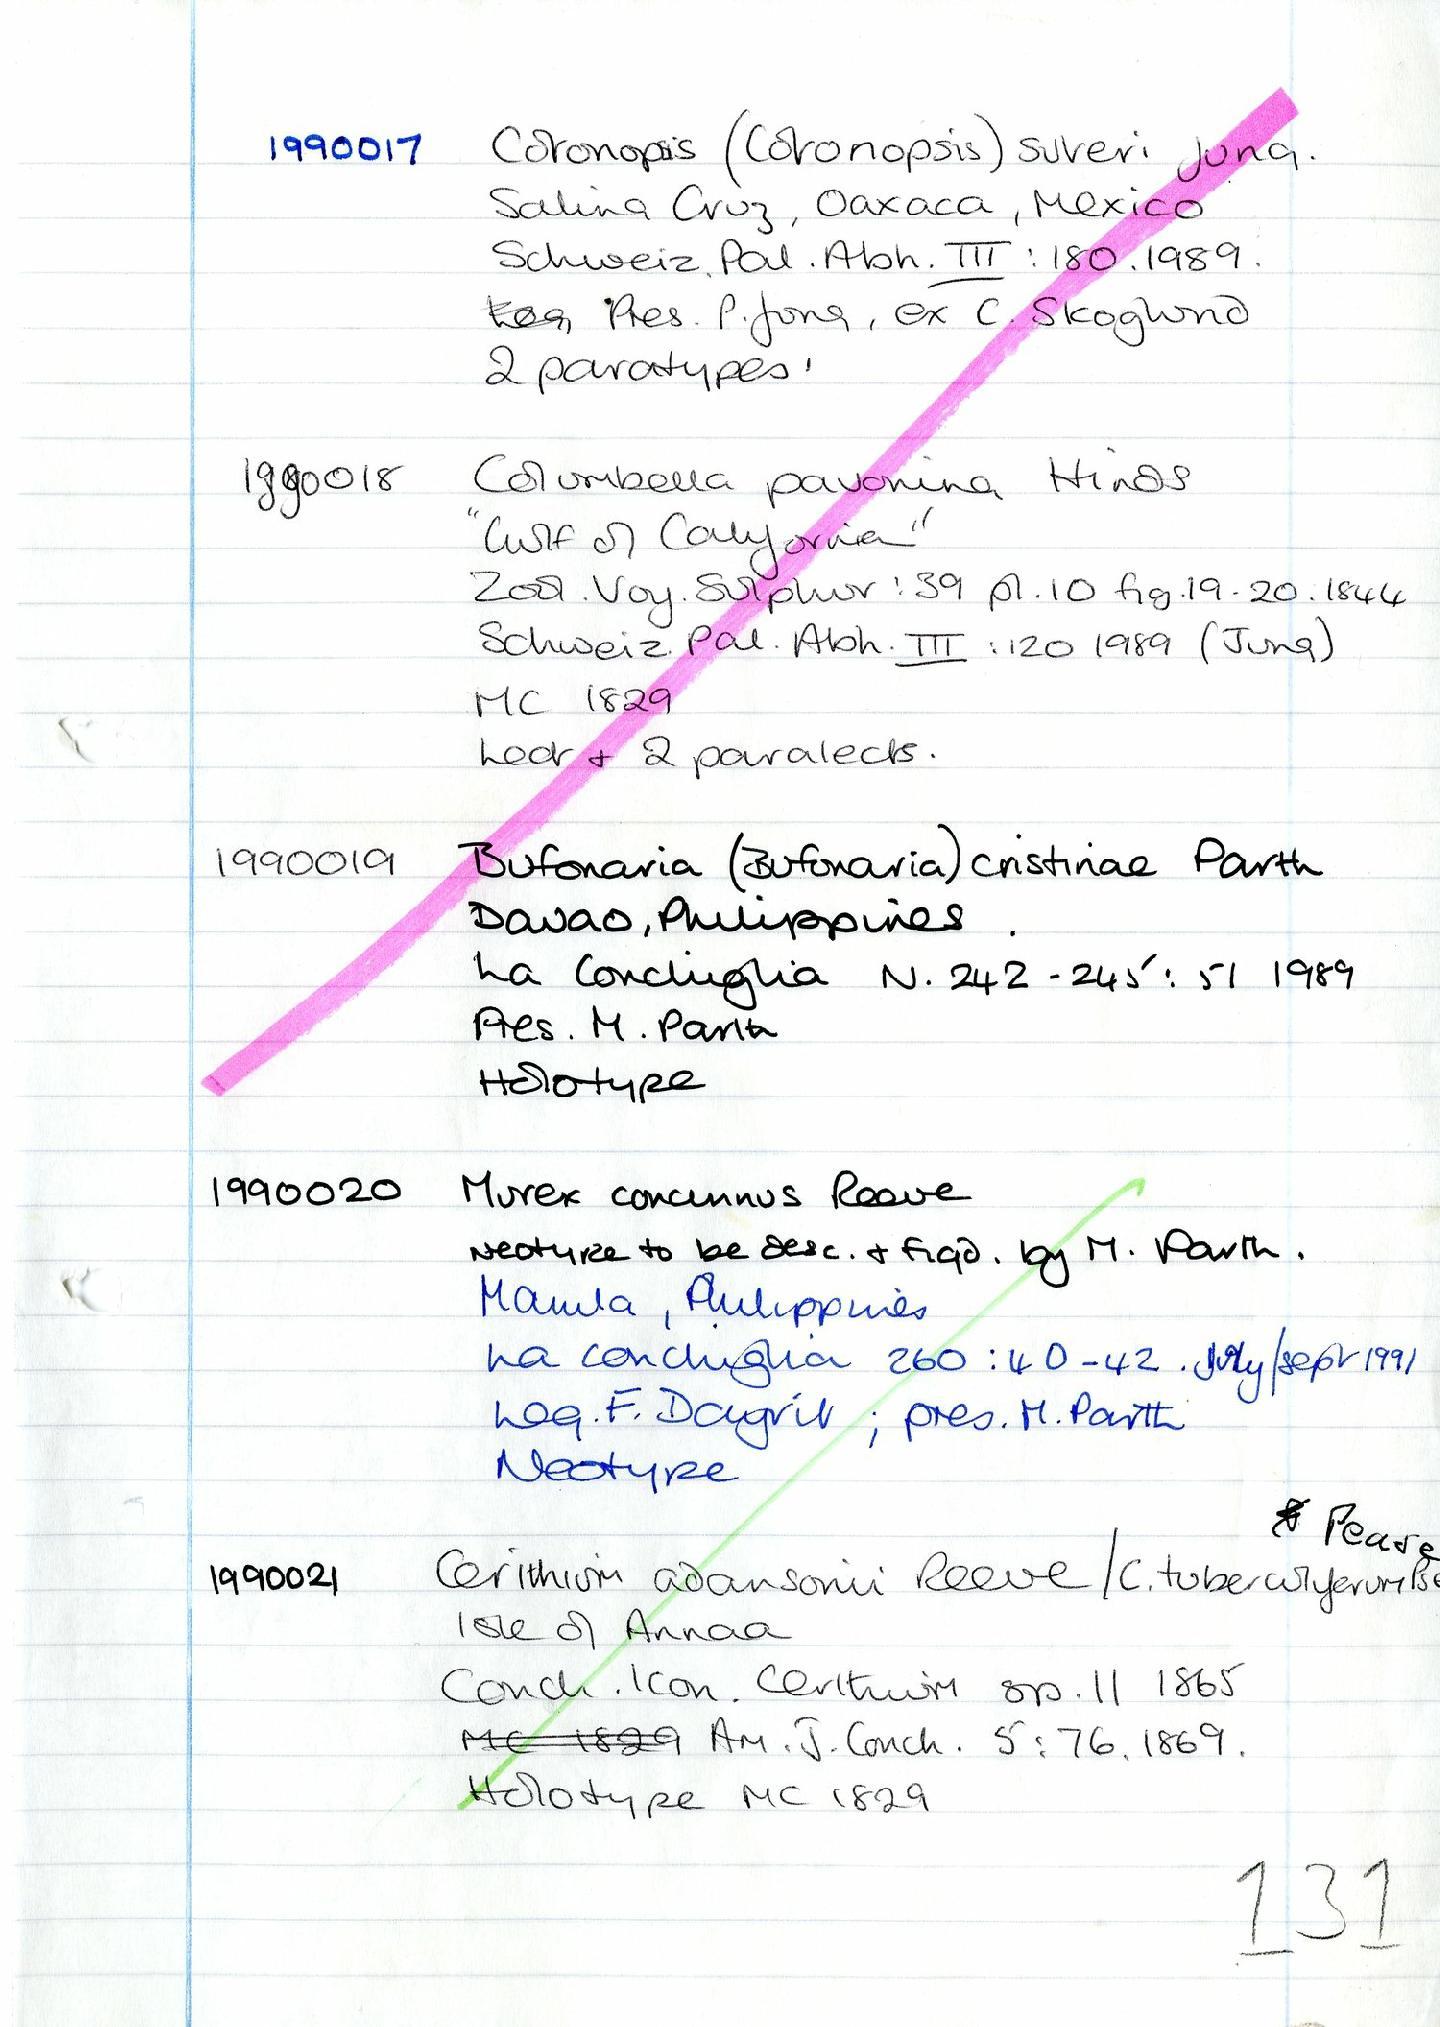 1990017 Cotonopsis (Cotonopsis) suteri Jung.
Salina Cruz, Oaxaca, Mexico
Schweiz. Pal. Abh. III : 180. 1989.
Pres. P. Jung, ex C. Skoglund
2 paratypes.
1990018 Columbella pavonina Hinds
"Gulf of California"
Zool. Voy. Sulphur : 39 pl. 10 fig. 19-20. 1844
Schweiz. Pal. Abh. III : 120 1989 (Jung)
MC 1829
Lect + 2 paralects.
1990019 Bufonaria (Bufonaria) cristinae Parth
Davao, Philippines.
La Conchiglia N. 242-245 : 51 1989
Pres. M. Parth
Holotype
1990020 Murex concinnus Reeve
Neotype to be desc. + figd. by M. Parth.
Manila, Philippines
La Conchiglia 260 : 40-42. July/Sept 1991
Leg. F. Dayrit ; pres. M. Parth
Neotype
Pease
1990021 Cerithium adansonii Reeve / C. tuberculiferum
Isle of Annaa
Conch. Icon. Cerithium sp. 11 1865
MC 1829 Am. J. Conch. 5 : 76. 1869.
Holotype MC 1829
131